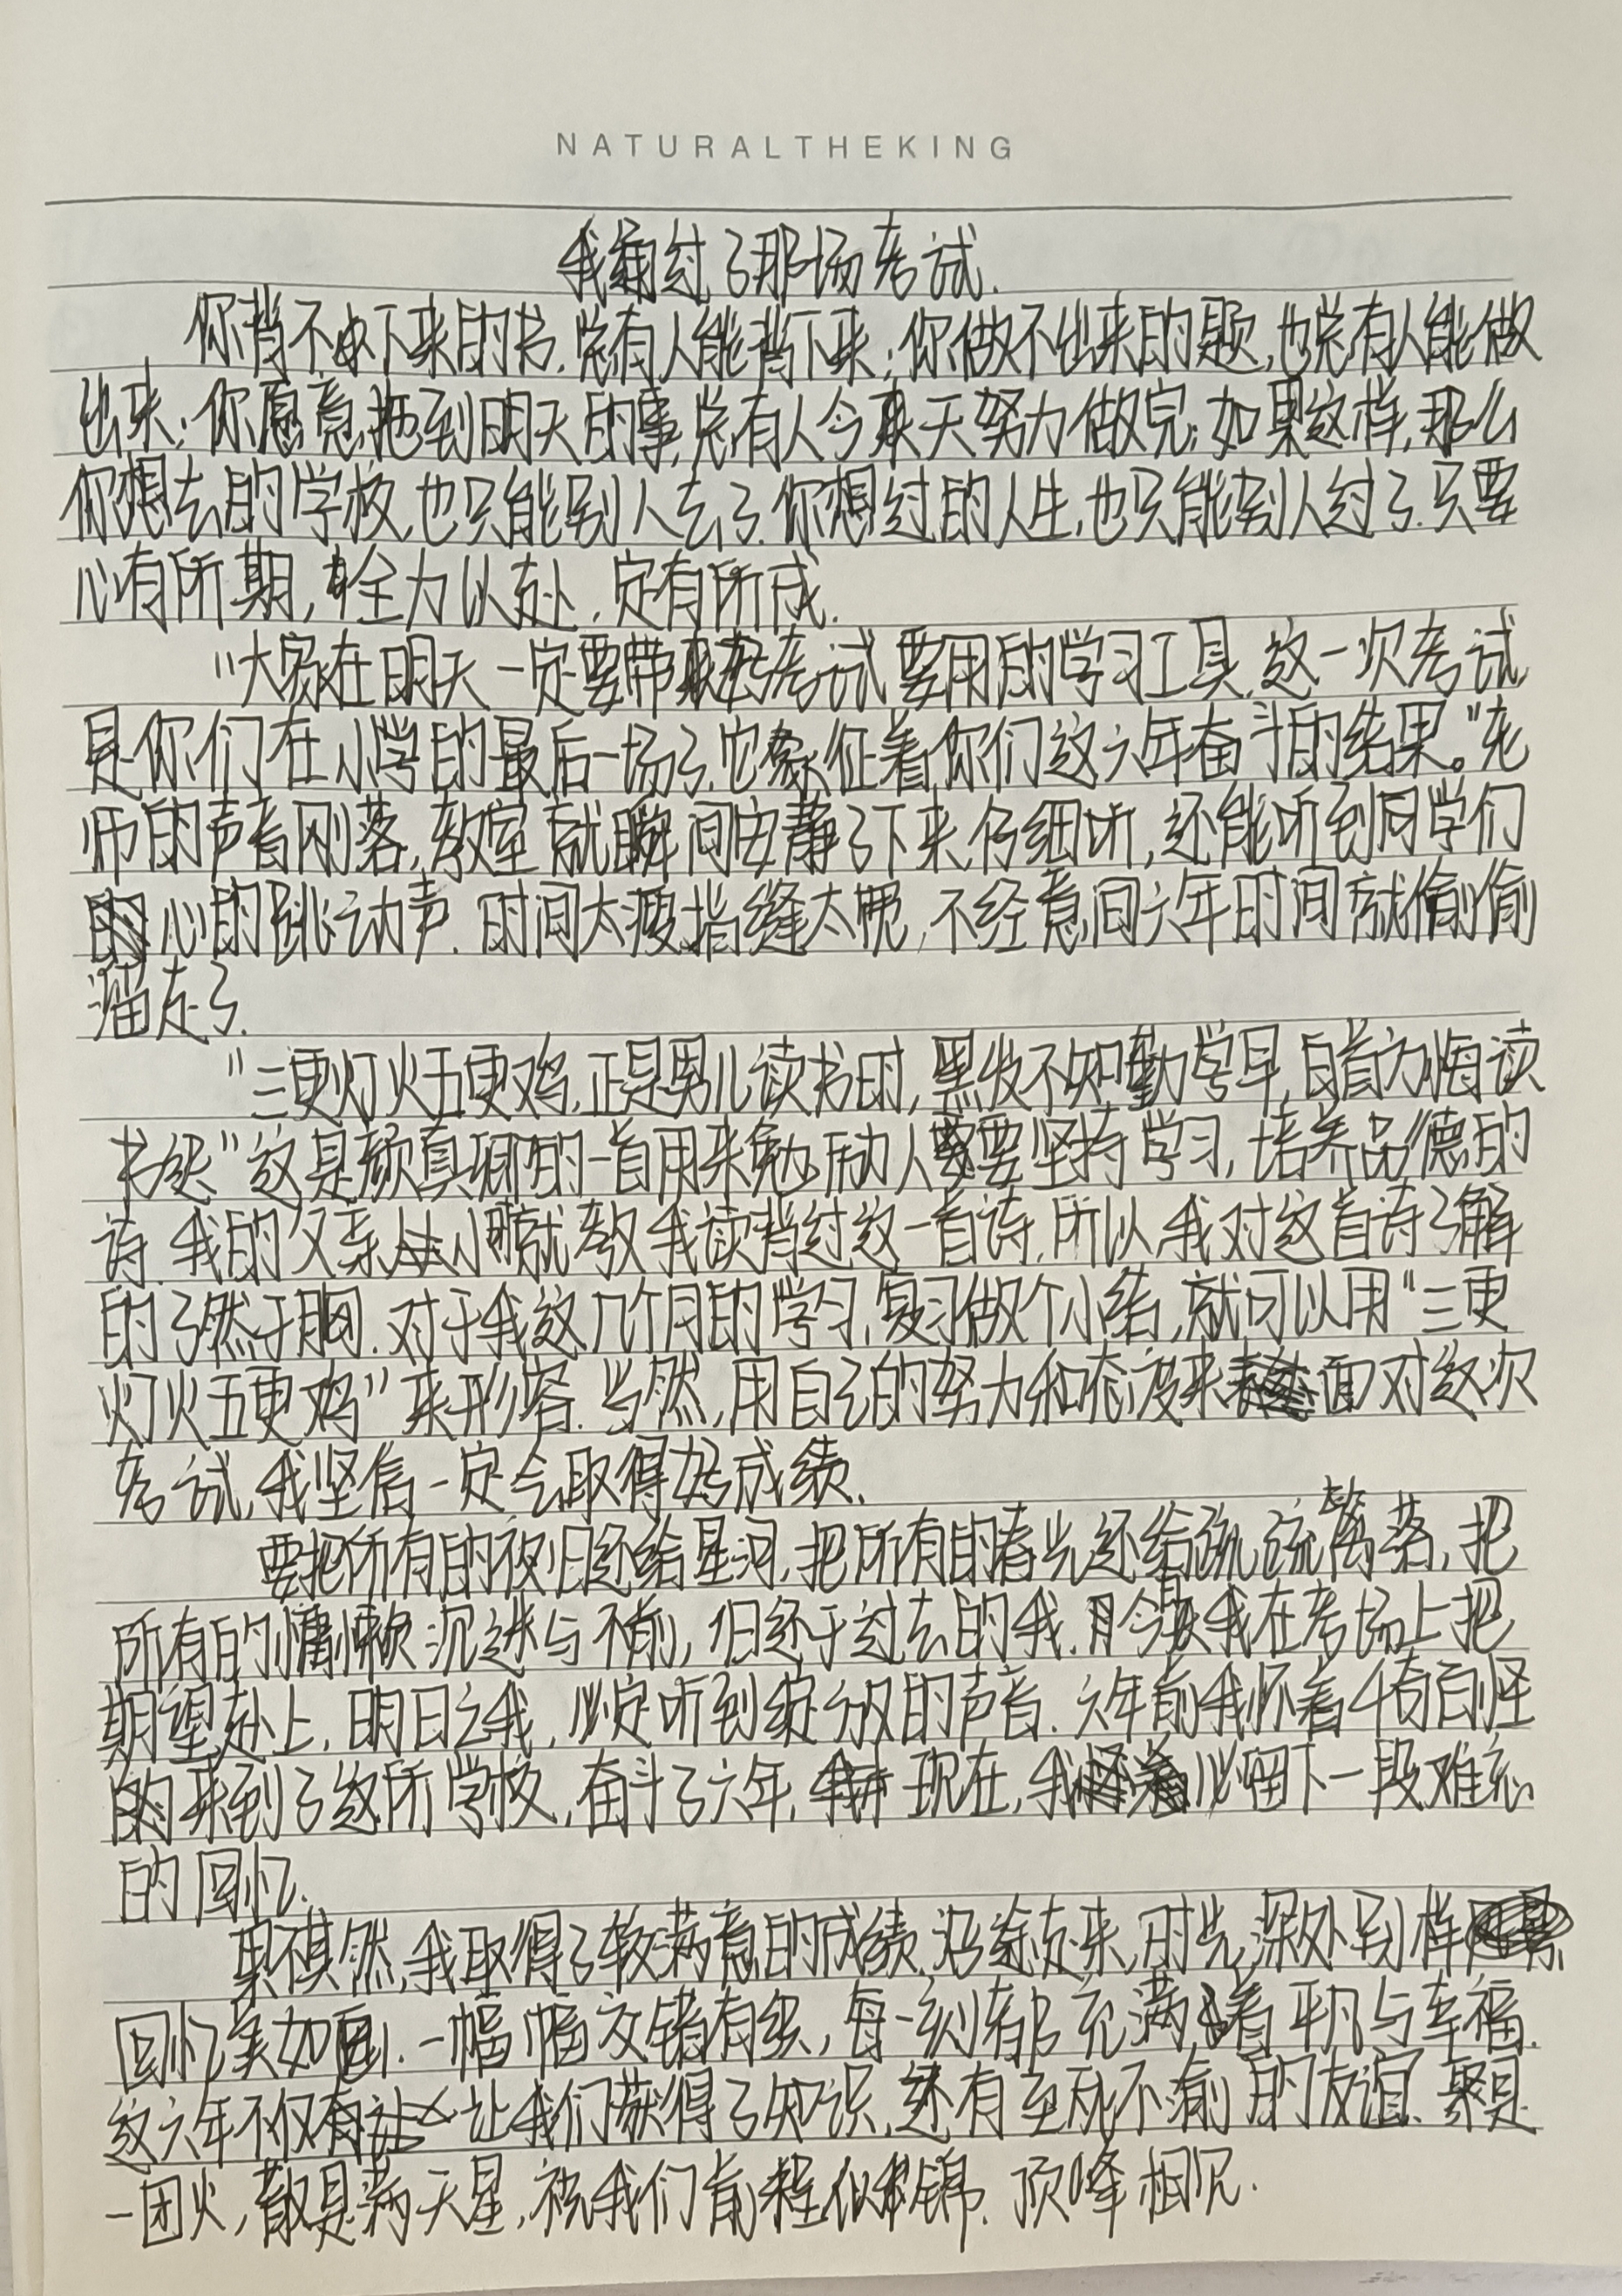 NATURALTHEKING
我通过了那场考试.
你背不下来的书,总有人能背下来;你做不出来的题,也总有人能做
出来;你愿意拖到明天的事,总有人今天努力做完;如果这样,那么
你想去的学校,也只能别人去了.你想过的人生,也只能别人过了.只要
心有所期,全力以赴,定有所成.
“大家在明天一定要带好考试要用的学习工具.这一次考试
是你们在小学的最后一场了.也象征着你们这六年奋斗的结果。”老
师的声音刚落,教室就瞬间安静了下来,仔细听,还能听到同学们
心的跳动声.时间太瘦,指缝太宽,不经意间六年时间就偷偷
溜走了.
“三更灯火五更鸡,正是男儿读书时,黑发不知勤学早,白首方悔读
书迟.”这是颜真卿的一首用来勉励人要坚持学习,培养品德的
诗.我的父亲从小就教我读背过这一首诗,所以我对这首诗了解
的了然于胸.对于我这几个月的学习,复习做个小结,就可以用“三更
灯火五更鸡”来形容.当然,用自己的努力和态度来面对这次
考试,我坚信一定会取得好成绩.
要把所有的夜归还给星河,把所有的春光还给疏疏篱落,把
所有的慵懒沉迷与不前,归还于过去的我.今我在考场上把
期望赴上,明日之我,必定听到绽放的声音.六年前我怀着千奇百怪
的来到了这所学校,奋斗了六年,现在,我必留下一段难忘
的回忆.
果不其然,我取得了较满意的成绩.沿途走来,时光深处别样
回忆美如画.一幅幅交错有致,每一刻都充满着平凡与幸福.
这六年不仅让我们获得了知识,还有至死不渝的友谊.聚是
一团火,散是满天星,祝我们前程似锦.顶峰相见.